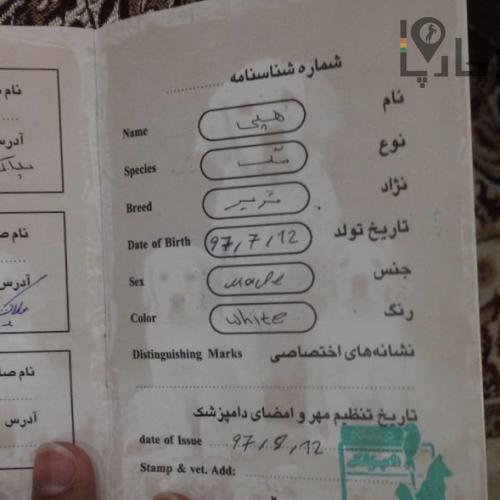 چارپا
شماره شناسنامه ............
Name هپی نام
Species سگ نوع
Breed تریر نژاد
Date of Birth 97,7,12 تاریخ تولد
Sex male جنس
Color white رنگ
Distinguishing Marks نشانه‌های اختصاصی
تاریخ تنظیم مهر و امضای دامپزشک
date of Issue 97,8,12
Stamp & vet. Add:
آدرس
نام
آدرس
نام
آدرس